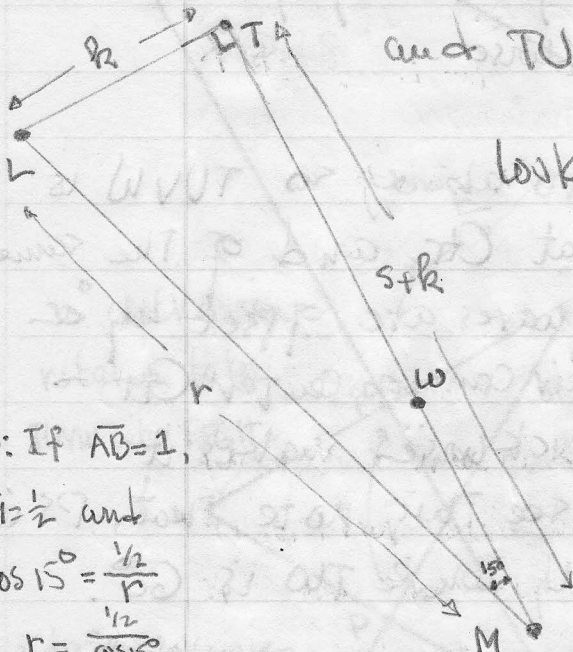 k
T
and TU
L
look
s+k
r
W
: If AB=1,
=½ and
os 15° = ½/r
15°
r = ½/cos 15°
M